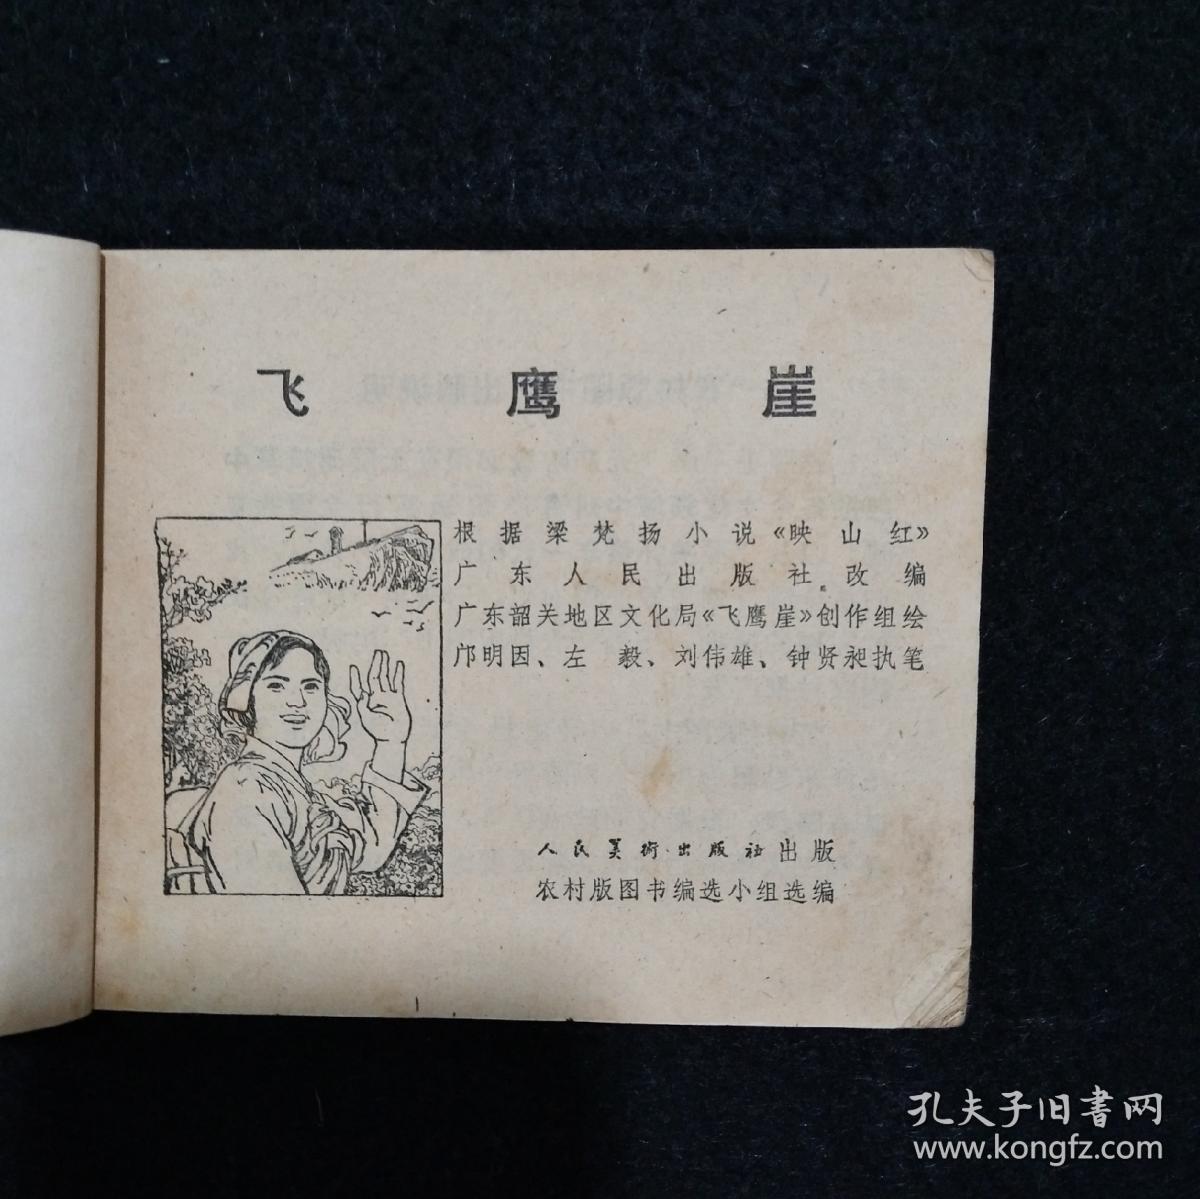 飞鹰崖
根据梁梵扬小说《映山红》
广东人民出版社改编
广东韶关地区文化局《飞鹰崖》创作组绘
邝明因、左毅、刘伟雄、钟贤昶执笔
人民美術出版社出版
农村版图书编选小组选编
孔夫子旧書网
www.kongfz.com